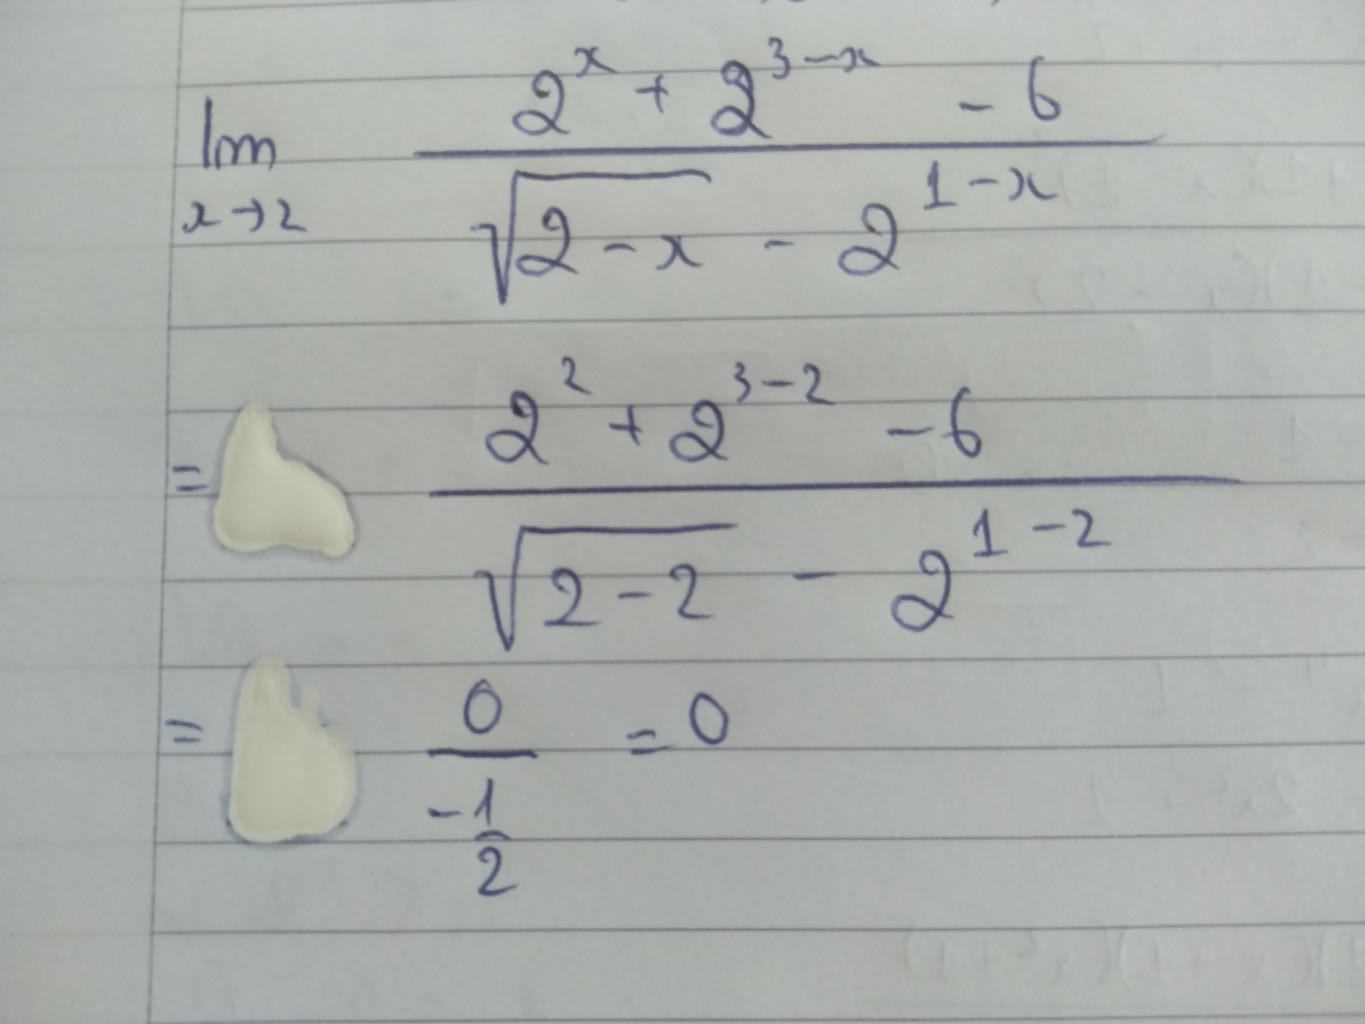 lim 2^x + 2^{3-x} - 6
x→2 √(2-x) - 2^{1-x}
= 2^2 + 2^{3-2} - 6
√(2-2) - 2^{1-2}
= 0 = 0
-1
2